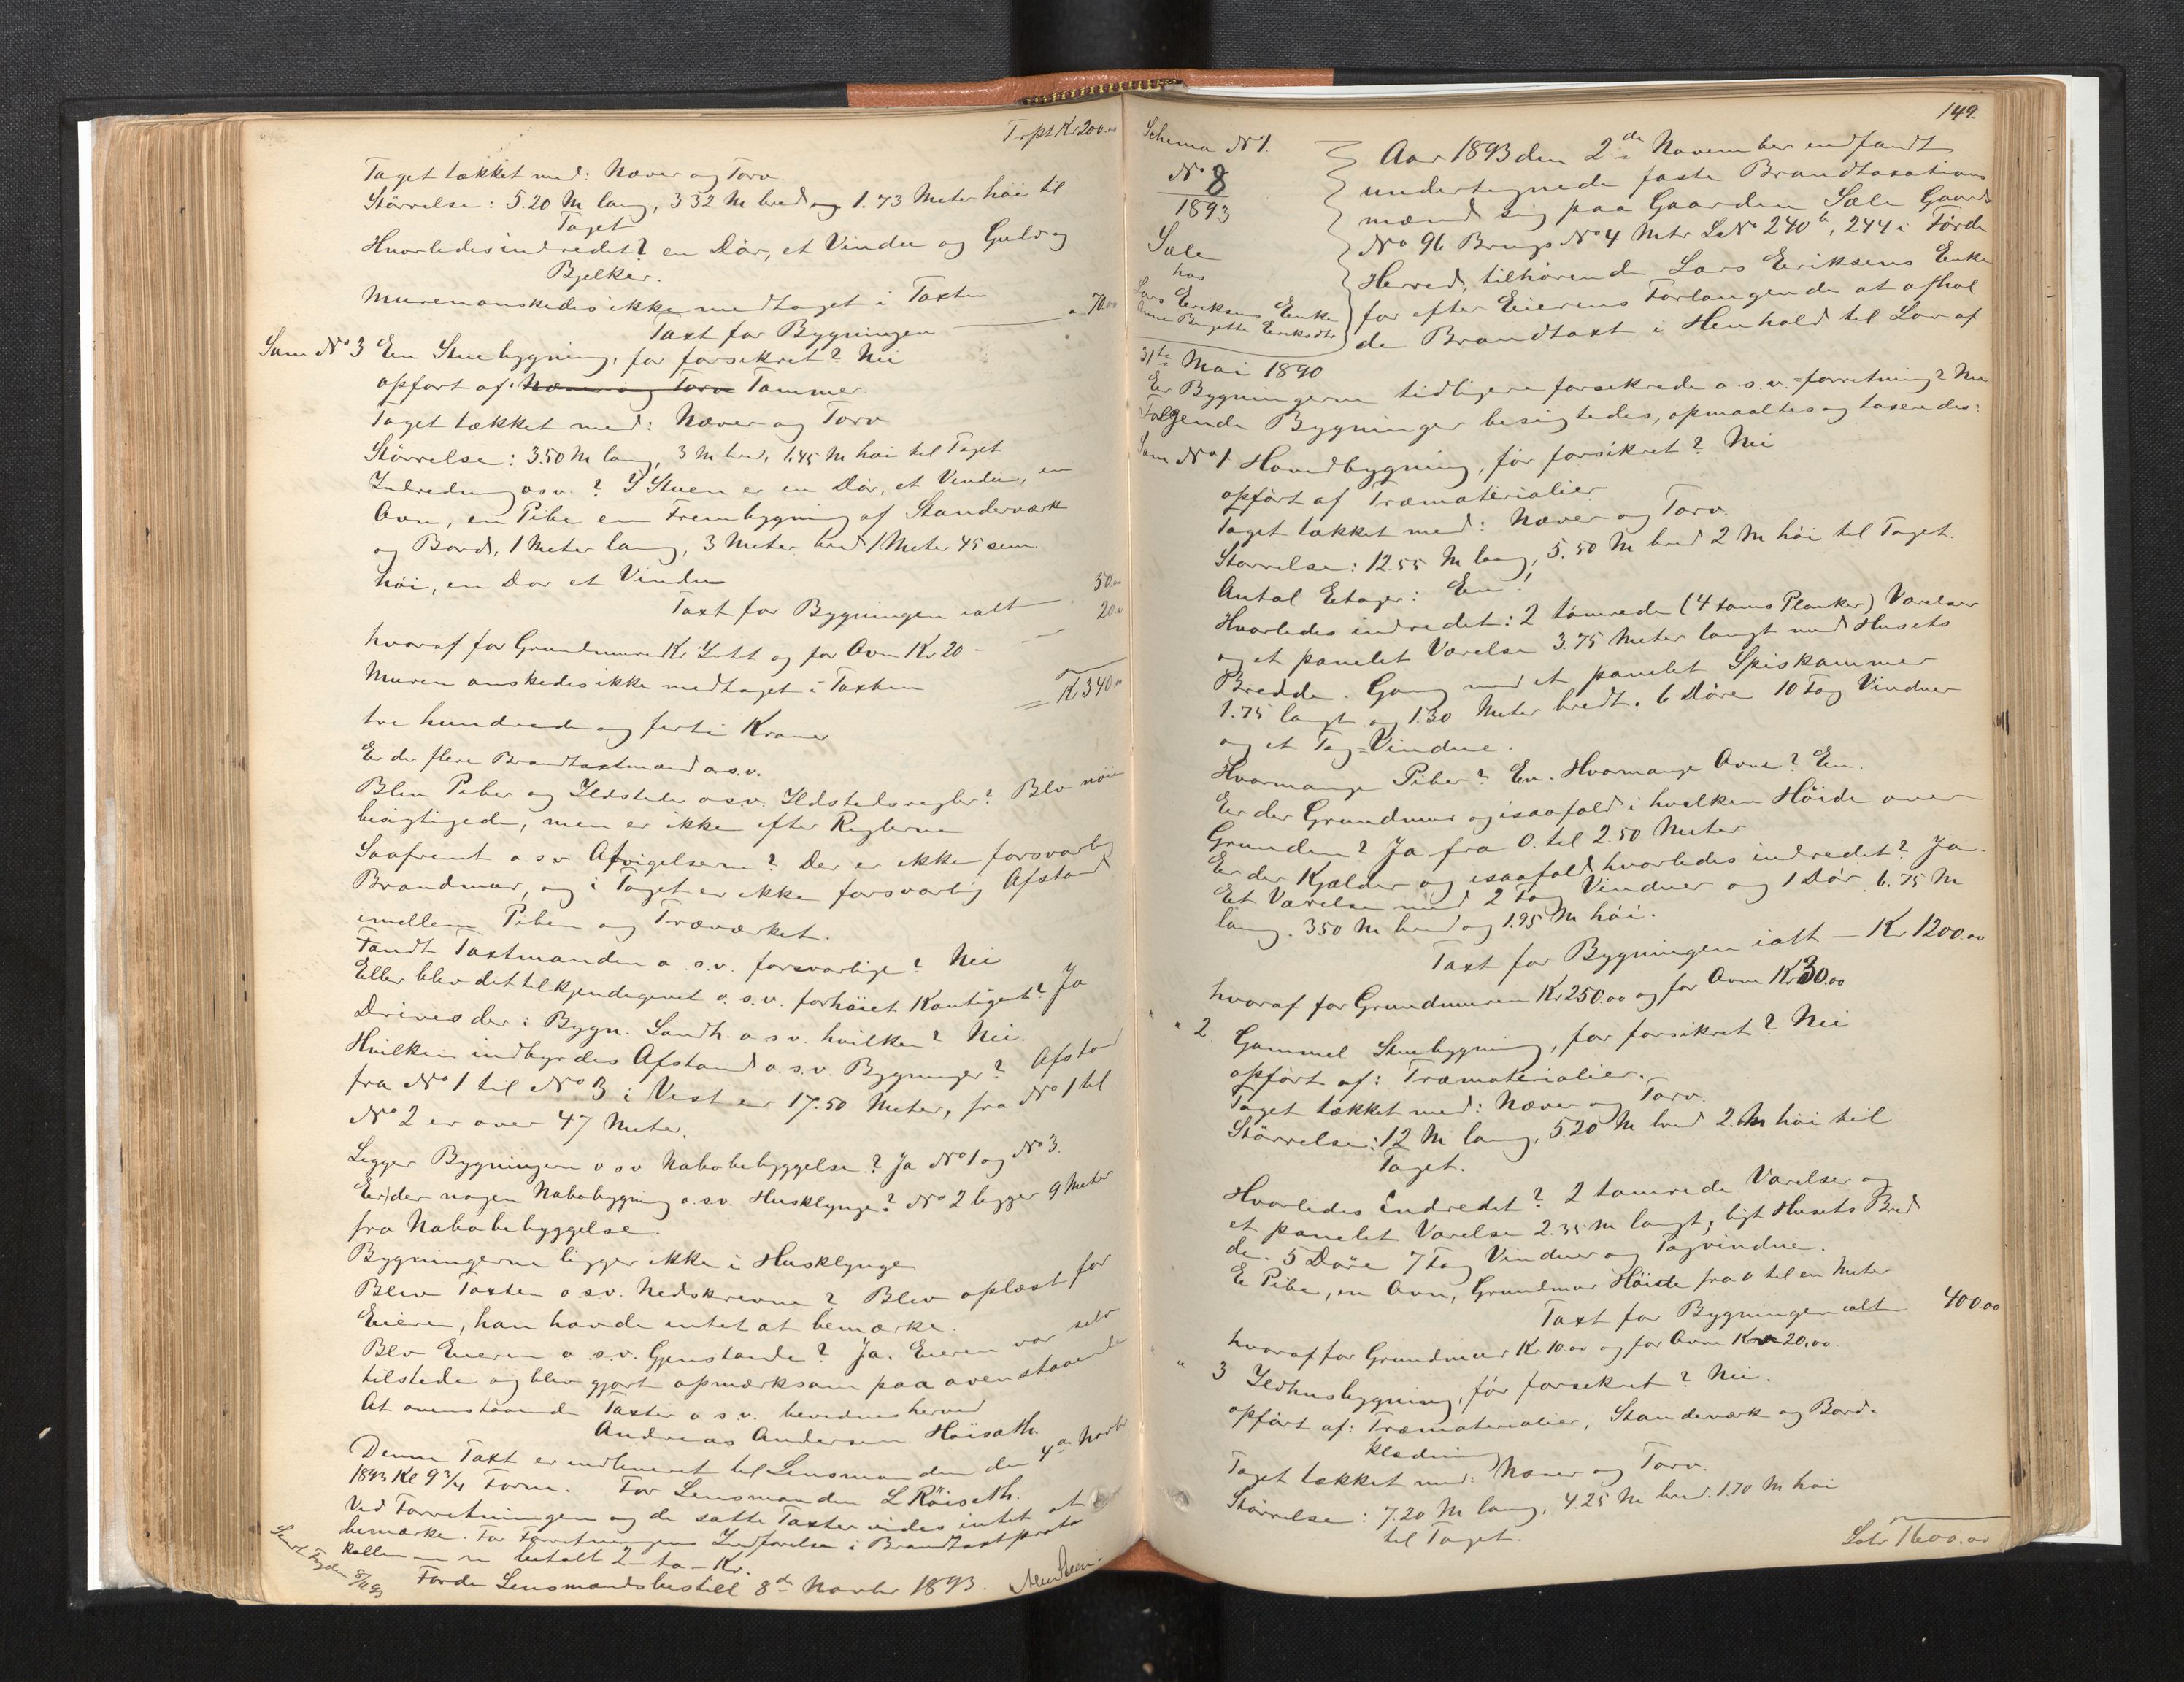 Trpt Kr 200.00
Taget tækket med: Næver og Torv.
Störrelse: 5.20 M lang, 3 32 M bred og 1.73 Meter höi til
Taget
Hvorledes indredet? en Dör, et Vindu og Gulv og
Bjelker.
Muren önskedes ikke medtaget i Taxten
Taxt for Bygningen — " 70.00
Sum No 3 En Stuebygning, för forsikret? Nei
opfört af: Næver og Torv Tømmer.
Taget tækket med: Næver og Torv
Störrelse: 3.50 M lang, 3 M bred, 1.45 M höi til Taget
Indredning osv.? I Stuen er en Dör, et Vindu, en
Ovn, en Pibe en Frembygning af Standerværk
og Bord, 1 Meter lang, 3 Meter bred 1 Meter 45 cem.
höi, en Dör et Vindu
Taxt for Bygningen ialt — 50.00
hvoraf for Grundmuren Kr Intet og for Ovn Kr 20 — 20.00
Muren önskedes ikke medtaget i Taxten
Kr 340.00
tre hundrede og forti Kroner
Er der flere Brandtaxtmænd o.s.v.
Blev Piber og Ildsteder o.s.v. Ildstedsregler? Blev nöie
besigtigede, men er ikke efter Reglerne
Saafremt o.s.v. Afvigelserne? Der er ikke forsvarlig
Brandmur, og i Taget er ikke forsvarlig Afstand
imellem Piben og Træværket.
Fandt Taxtmanden o.s.v. forsvarlige? Nei
Eller blev det tilkjendegivet o.s.v. forhöiet Kontigent? Ja
Drives der i Bygn. Landh. o s v. hvilken? Nei.
Hvilken indbyrdes Afstand o.s.v. Bygninger? Afstand
fra No 1 til No 3 i Vest er 17.50 Meter, fra No 1 til
No 2 er over 47 Meter.
Ligger Bygningerne o s v Nabobebyggelse? Ja No 1 og No 3.
Er der nogen Nabobygning o.s.v. Husklynge? No 2 ligger 9 Meter
fra Nabobebyggelse.
Bygningerne ligger ikke i Husklynge
Blev Taxten o.s.v. Nedskrevne? Blev oplæst for
Eieren, han havde intet at bemærke.
Blev Eieren o.s.v. Gjenstande? Ja. Eieren var selv
tilstede og blev gjort opmærksom paa ovenstaaende
At ovenstaaende Taxter o s v. bevidnes herved
Andreas Andersen Höisæth.
Denne Taxt er indleveret til Lensmanden den 4de Novbr
1893 Kl 9 3/4 Form. For Lensmanden L Röiseth.
Ved Forretningen og de satte Taxter vides intet at
bemærke. For Forretningens Indförelse i Brandtaxtproto
kollen er betalt 2 – to – Kr.
Førde Lensmandsbestill 8de Novbr 1893.
Sendt Fogden 8/11 93
149.
Schema No 1.
No 8
1893
Sæle
hos
Lars Eriksens Enke
Anne Birgitte Eriksdtr
Aar 1893 den 2den November indfandt
undertegnede faste Brandtaxations
mænd sig paa Gaarden Sæle Gaards
No 96 Brugs No 4 Matr L No 240b, 244 i Førde
Herred, tilhörende Lars Eriksens Enke
for efter Eierens Forlangende at afhol
de Brandtaxt i Henhold til Lov af
31te Mai 1890
Er Bygningerne tidligere forsikrede o.s.v. forretning? Nei
Følgende Bygninger besigtedes, opmaaltes og taxeredes:
Sum No 1 Hovedbygning, för forsikret? Nei
opfört af Træmaterialier
Taget tækket med: Næver og Torv.
Störrelse: 12.55 M lang, 5.50 M bred 2 M höi til Taget.
Antal Etager: En!
Hvorledes indredet: 2 tömrede (4 toms Planker) Værelser
og et panelet Værelse 3.75 Meter langt med Husets
Bredde. Gang med et panelet Spiskammer
1.75 langt og 1.30 Meter bredt. 6 Döre 10 Fag Vinduer
og et Tag-Vindue.
Hvormange Piber? En. Hvormange Ovne? En.
Er der Grundmur og isaafald i hvilken Höide over
Grunden? Ja fra 0. til 2.50 Meter
Er der Kjælder og isaafald hvorledes indredet? Ja.
Et Værelse med 2 Fag Vinduer og 1 Dör 6.75 M
lang. 3.50 M bred og 1.95 M höi.
Taxt for Bygningen ialt — Kr 1200.00
hvoraf for Grundmuren Kr 250.00 og for Ovne Kr 30.00
" " 2. Gammel Stuebygning, för forsikret? Nei
opfört af: Træmaterialier.
Taget tækket med: Næver og Torv.
Störrelse: 12 M lang, 5.20 M bred 2. M höi til
Taget.
Hvorledes indredet? 2 tömrede Værelser og
et panelet Værelse 2.35 M langt, ligt Husets Bred
de. 5 Döre 7 Fag Vinduer og Tagvindue.
En Pibe, en Ovn, Grundmur Höide fra 0 til en Meter
Taxt for Bygningen ialt 400.00
hvoraf for Grundmur Kr 10.00 og for Ovn Kr 20.00.
" 3 Ildhusbygning, för forsikret? Nei.
opfört af: Træmaterialier, Standerværk og Bord-
klædning
Taget tækket med: Næver og Torv.
Störrelse: 7.20 M lang, 4.25 M bred. 1.70 M höi
til Taget.
Latr 1600.00